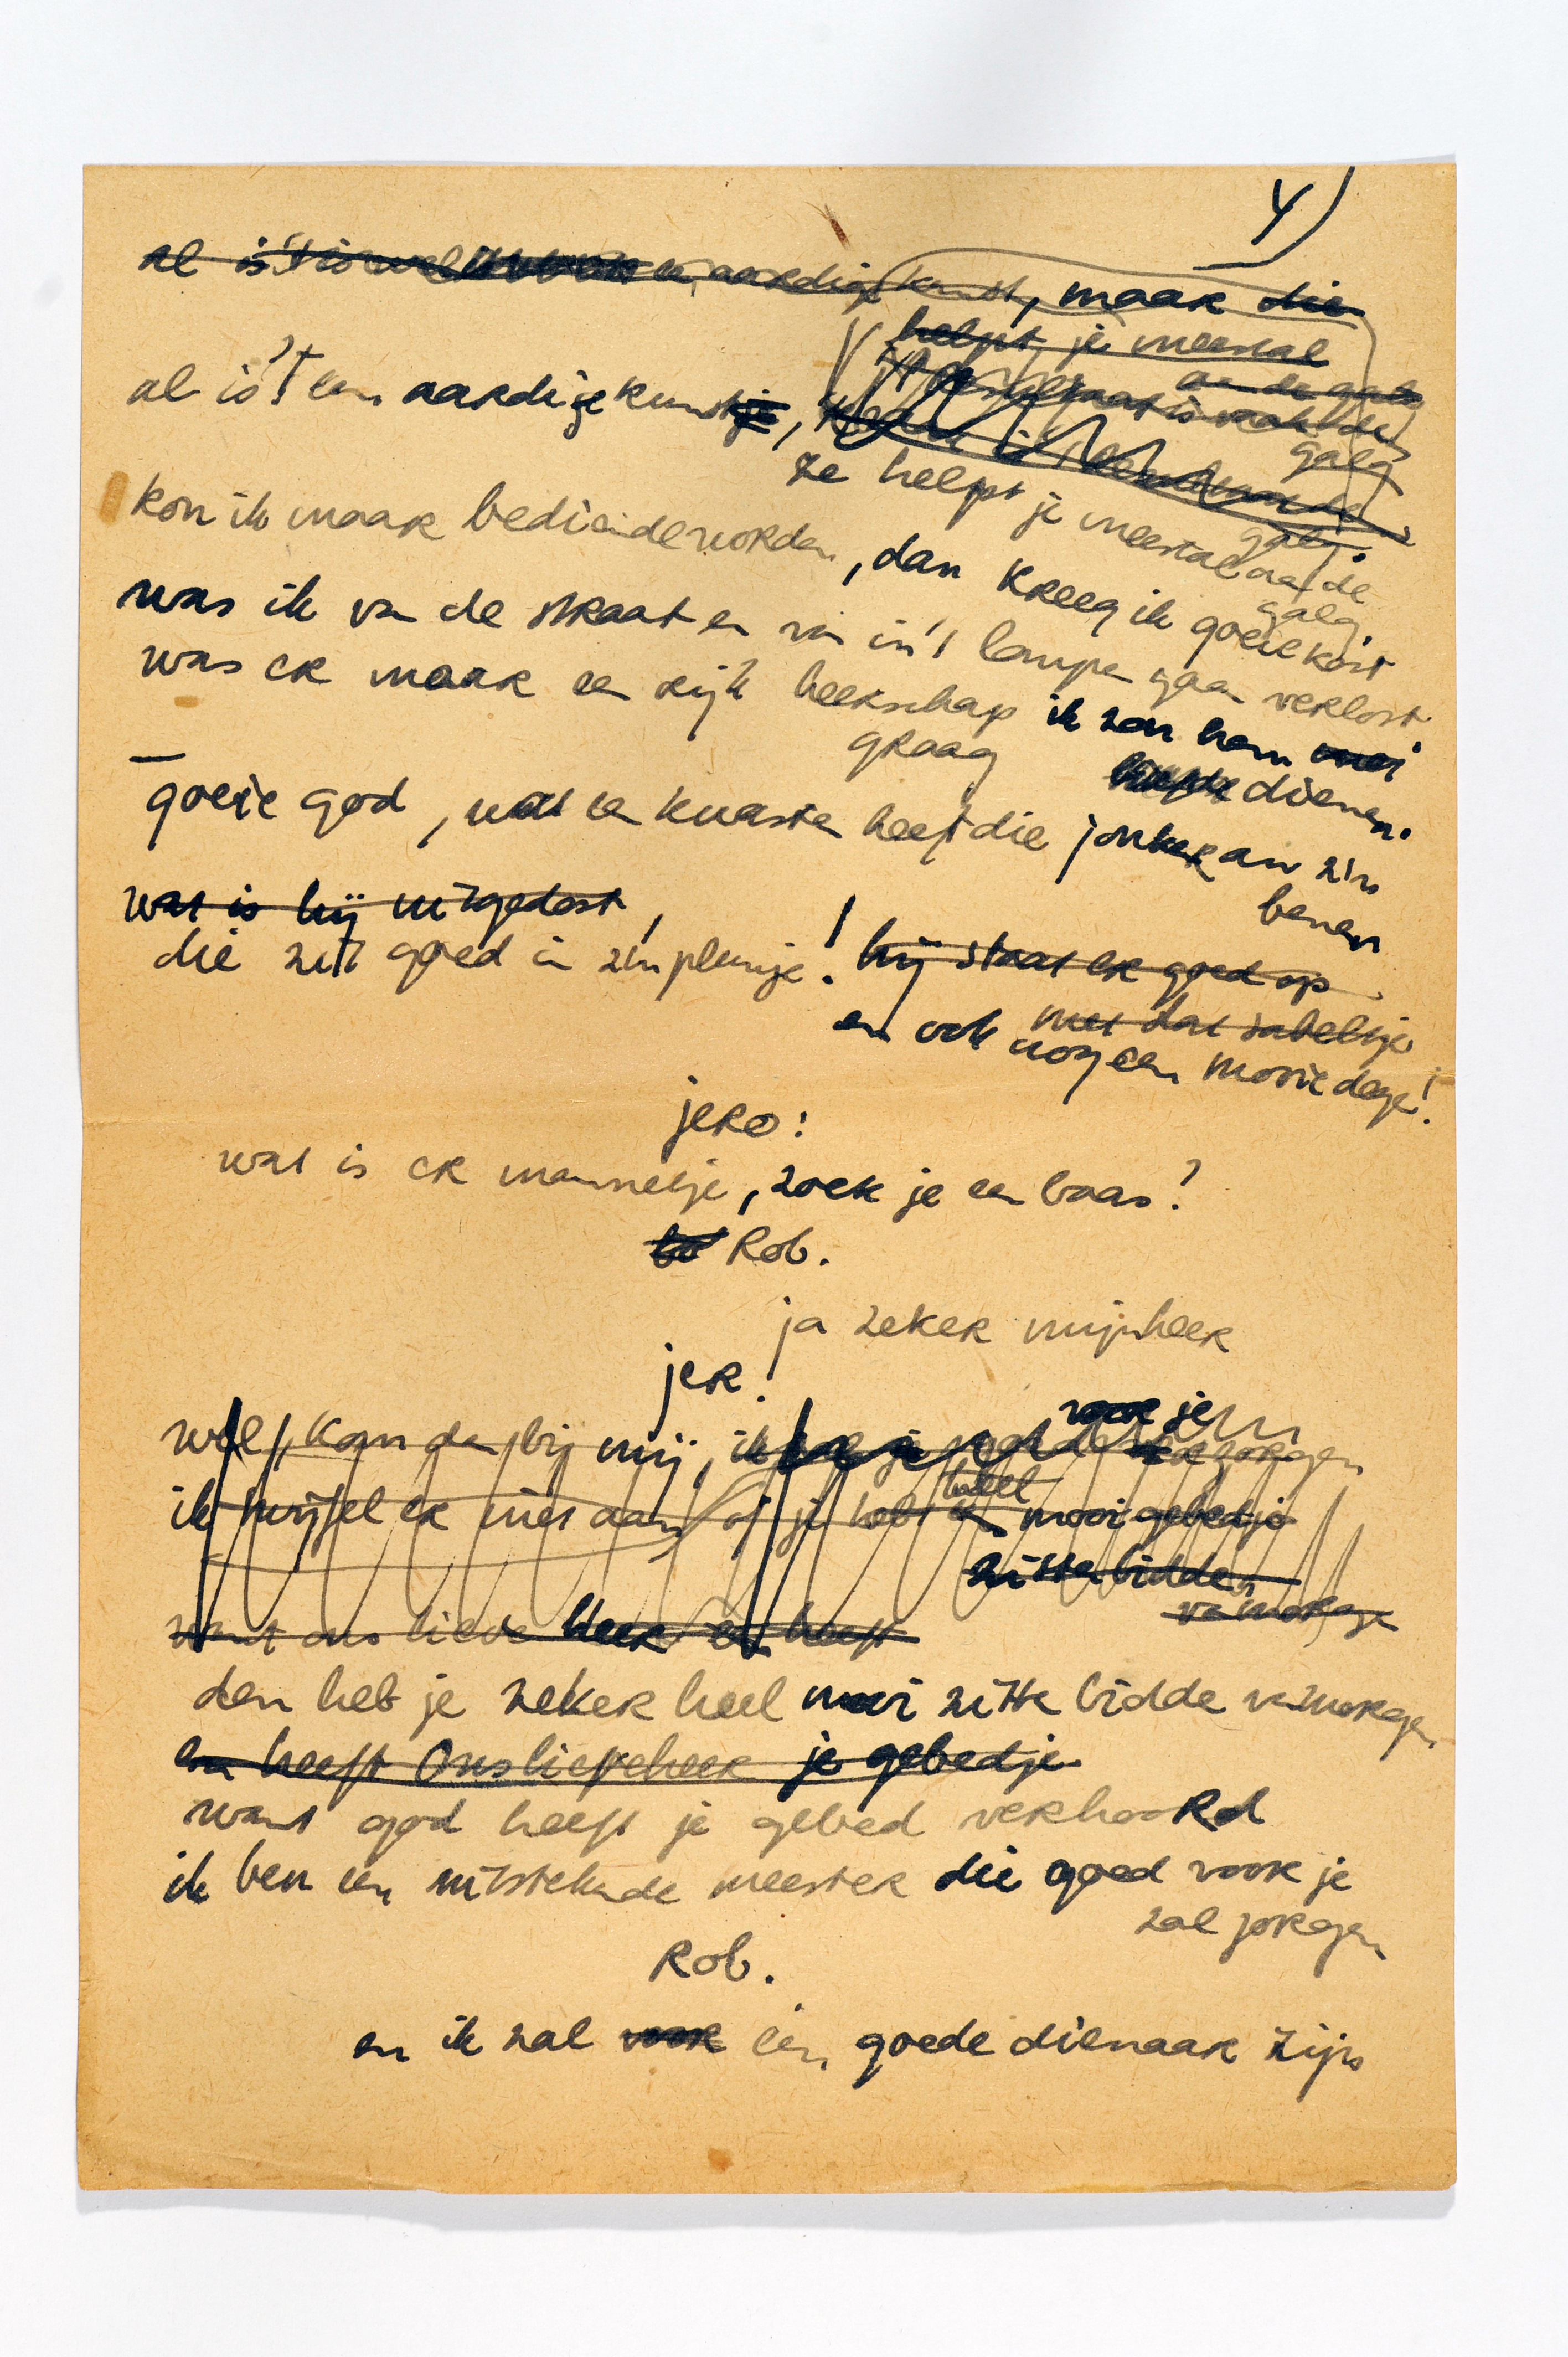 4)
al is 't is wel aardige kunst, maar die
helpt je meestal
aan de galg
al is 't een aardige kunstje,
resultaat is vaak de
galg
galg.
ze helpt je meestal aan de
galg
kon ik maar bediende worden, dan kreeg ik goeie kost
was ik van de straat en van in 't lompen gaan verlost
was er maar een rijk heerschap ik zou hem
graag dienen.
goeie god, wat een kwasten heeft die jonker an zin
benen
wat is hij uitgedost,
die zit goed in zin plunje! hij staat er goed op
met dat sabeltje
en ook nog een mooie dege!
jero:
wat is er mannetje, zoek je een baas?
Rob.
ja zeker mijnheer
jer.
wel, kom dan bij mij, ik zal je voor je zorgen
ik twijfel er niet aan of je hebt heel mooi gebedje
zitte bidden
vanmorge
want ons lieve Heer heeft
den heb je zeker heel mooi zitte bidde vanmorgen
en heeft Onslieveheer je gebedje
want god heeft je gebed verhoord
ik ben een uitstekende meester die goed voor je
zal zorgen
Rob.
en ik zal voor een goede dienaar zijn